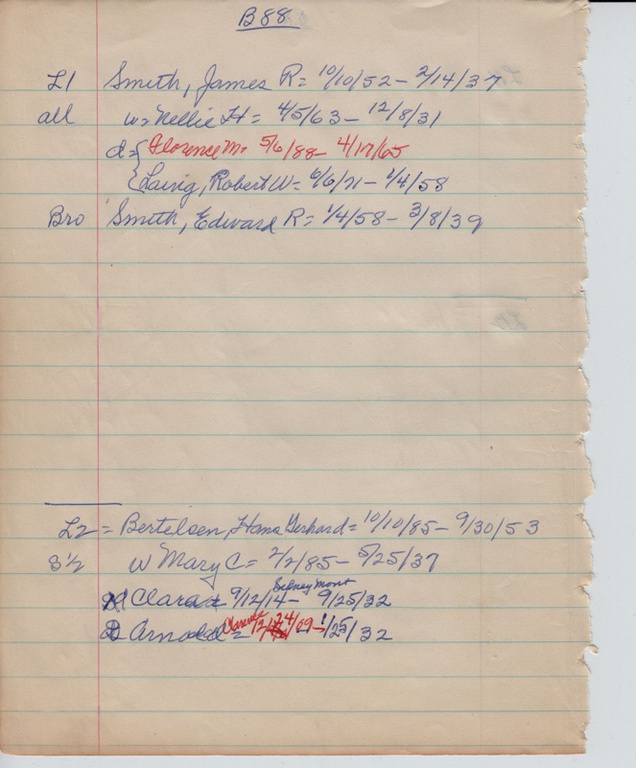 B88
L1 Smith, James R = 10/10/52 - 2/14/37
all w = Nellie H = 4/5/63 - 12/8/31
d = { Florence M = 5/6/88 - 4/17/65
{ Laing, Robert W = 6/6/71 - 1/4/58
Bro Smith, Edward R = 1/4/58 - 3/8/39
L2 = Bertelsen, Hans Gerhard = 10/10/85 - 9/30/53
S½ W Mary C = 2/2/85 - 5/25/37
Sidney Mont
Clara 9/12/14 - 9/25/32
Clarence
Arnold = 24/09 - 1/25/32